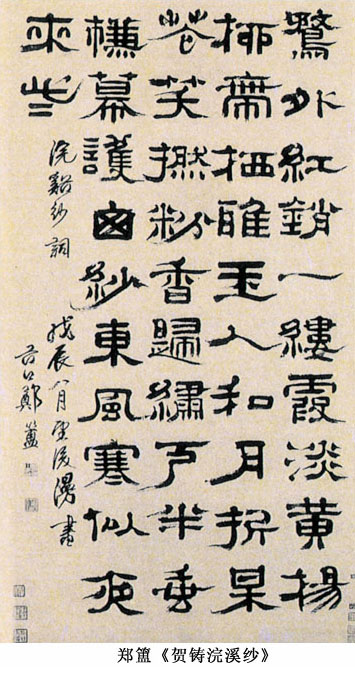 鶩外紅銷一縷霞淡黃楊
柳帶栖鴉玉人和月折某
花笑撚粉香歸繡戶半垂
幕護囱紗東風寒似夜
來些
浣谿紗詞 戊辰八月望後漫書
谷口鄭簠
郑簠《贺铸浣溪纱》